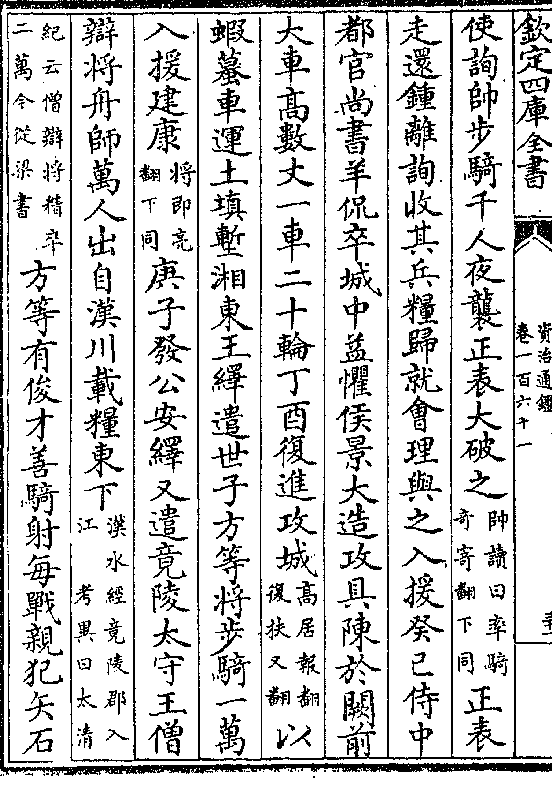 欽定四庫全書
資治通鑑
卷一百六十一
使詢帥步騎千人夜襲正表大破之
帥讀曰率騎
奇寄翻下同
正表
走還鍾離詢收其兵糧歸就會理與之入援癸巳侍中
都官尚書羊侃卒城中益懼侯景大造攻具陳於闕前
大車高數丈一車二十輪丁酉復進攻城
高居報翻
復扶又翻
以
蝦蟇車運土填塹湘東王繹遣世子方等將步騎一萬
入援建康
將即亮
翻下同
庚子發公安繹又遣竟陵太守王僧
辯將舟師萬人出自漢川載糧東下
漢水經竟陵郡入
江　考異曰太清
紀云僧辯將精卒
二萬今從梁書
方等有俊才善騎射每戰親犯矢石